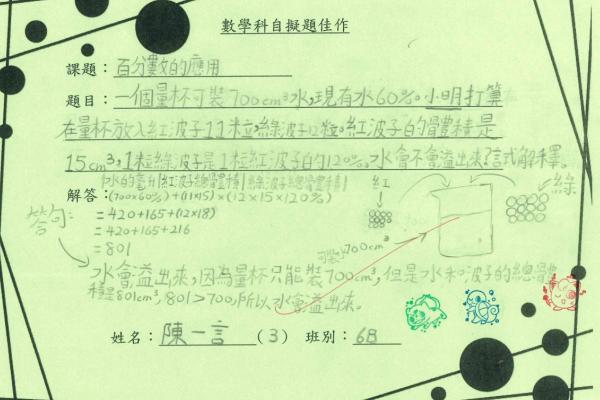 數學科自擬題佳作
課題：百分數的應用
題目：一個量杯可裝700cm³水,現有水60%。小明打算
在量杯放入紅波子11粒,綠波子12粒。紅波子的體積是
15cm³,1粒綠波子是1粒紅波子的120%。水會不會溢出來?試解釋。
水的容量 紅波子總體積 綠波子總體積
解答：(700×60%)+(11×15)+(12×15×120%)
=420+165+(12×18)
=420+165+216
=801
紅
綠
可裝700cm³
答句：
水會溢出來,因為量杯只能裝700cm³,但是水和波子的總體
積是801cm³,801>700,所以水會溢出來。
姓名：陳一言 (3) 班別：6B